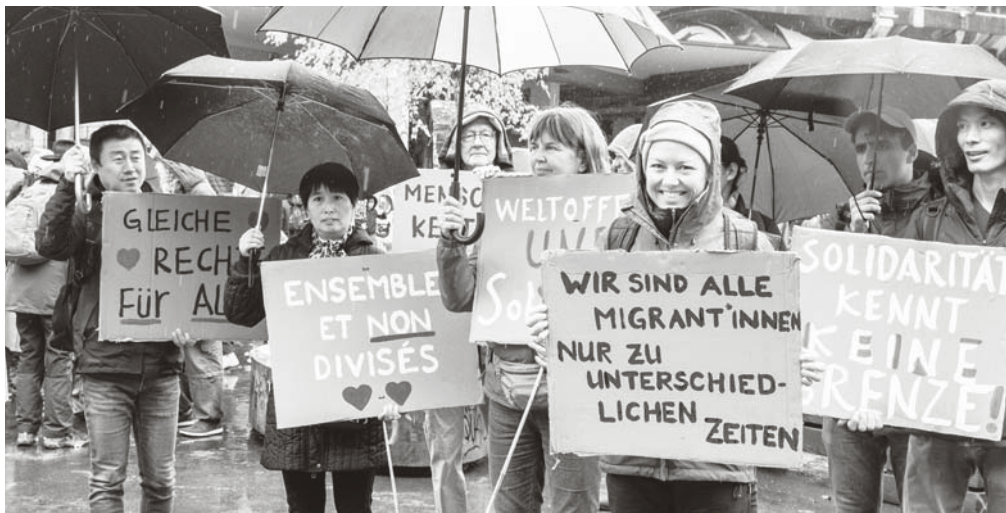 GLEICHE
RECH
FÜR AL
ENSEMBLE
ET NON
DIVISÉS
MENSC
KE
WELTOFFE
UN
SO
WIR SIND ALLE
MIGRANT*INNEN
NUR ZU
UNTERSCHIED-
LICHEN
ZEITEN
SOLIDARITÄT
KENNT
KEINE
GRENZE!